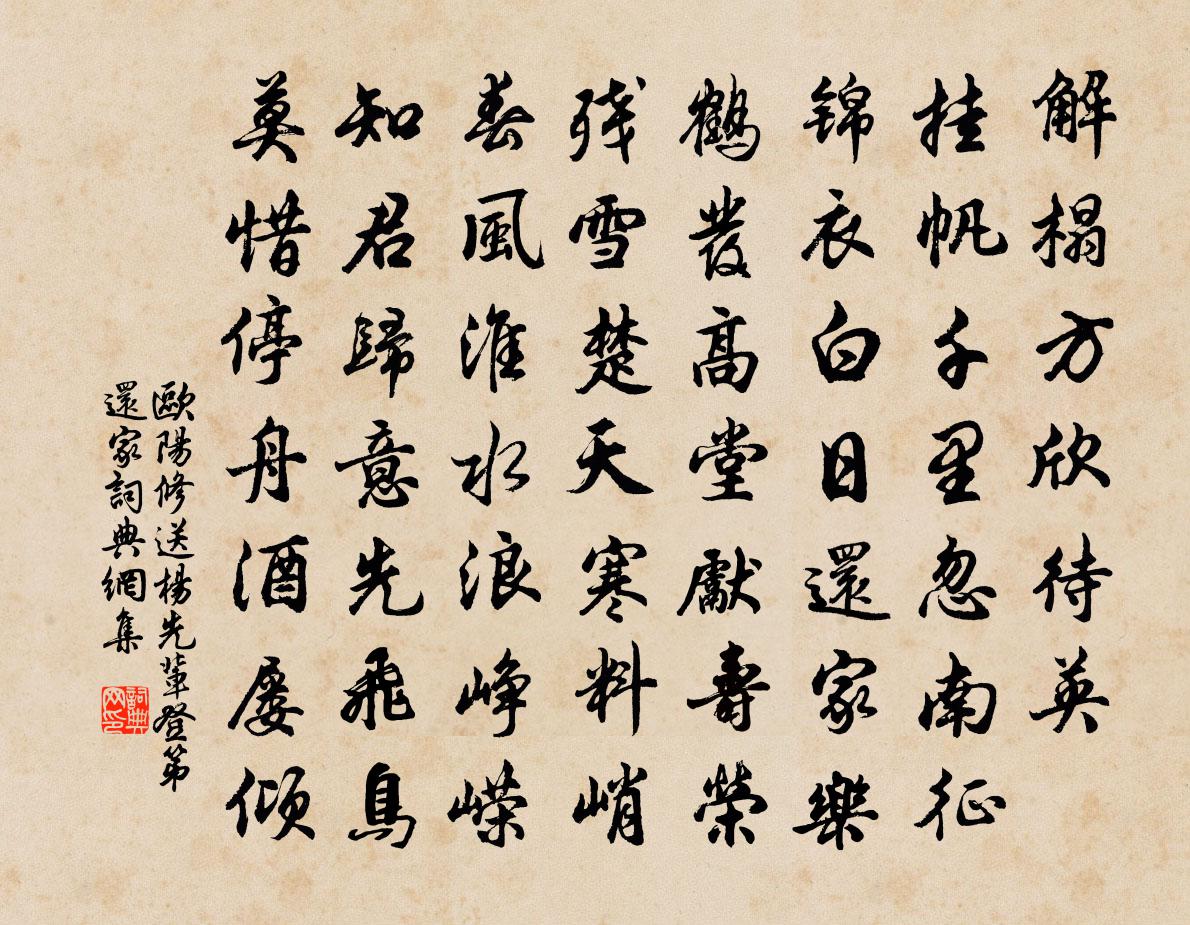 解榻方欣待英
挂帆千里忽南征
锦衣白日還家樂
鶴發高堂獻壽榮
残雪楚天寒料峭
春風淮水浪峥嵘
知君歸意先飛鳥
莫惜停舟酒屡傾
歐陽修送楊先輩登第
還家詞典網集
詞典
网印